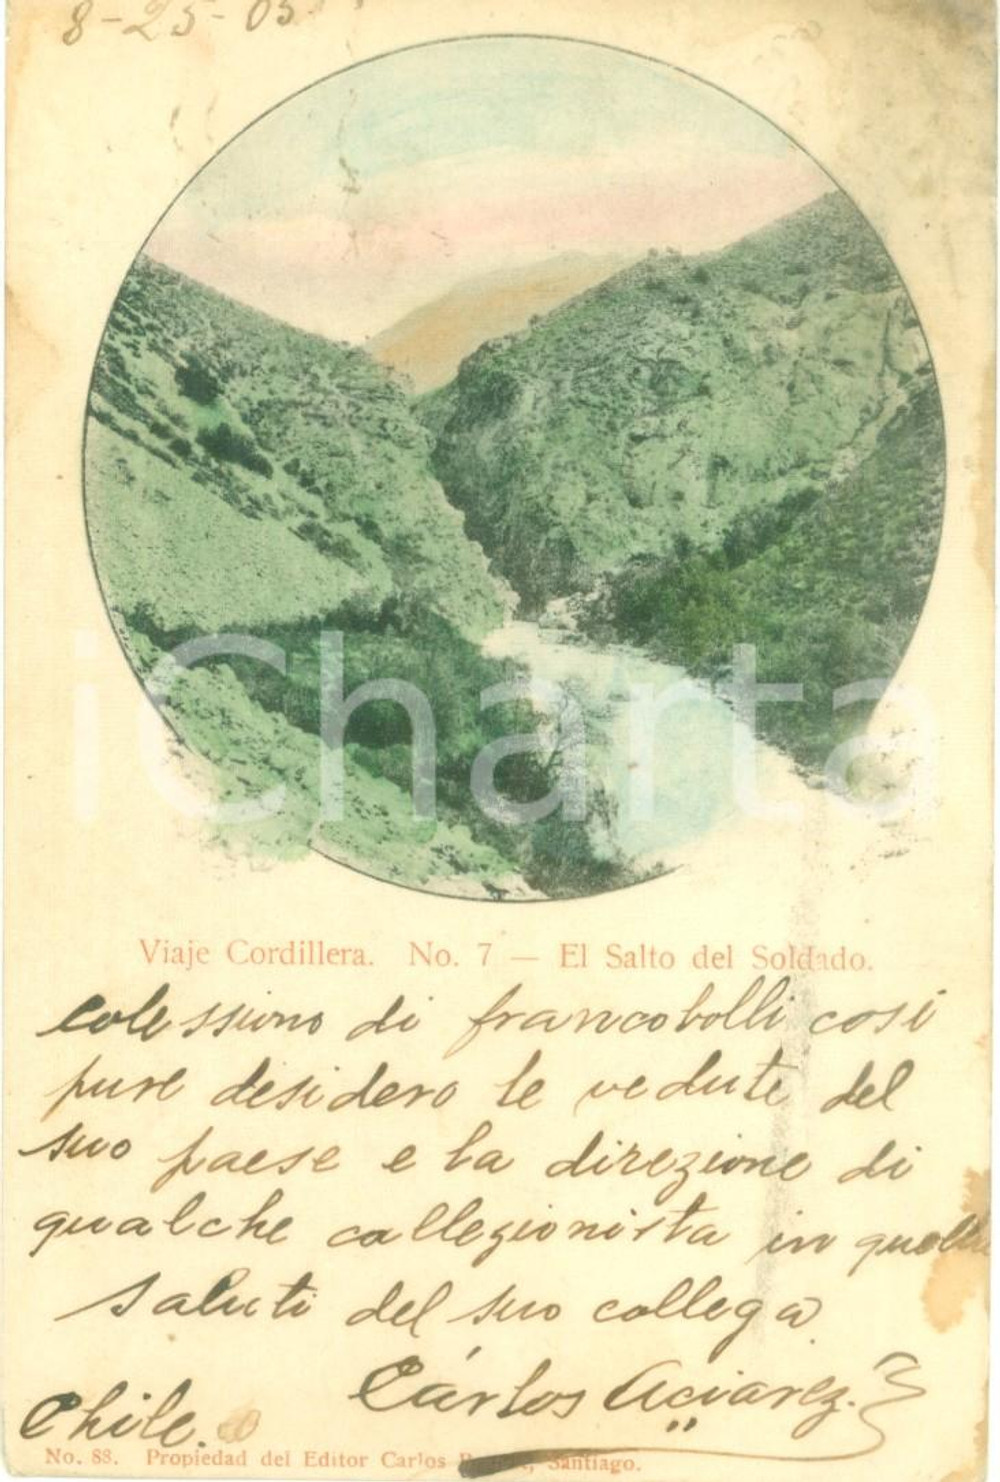 8-25-05.
iCharta
Viaje Cordillera. No. 7 — El Salto del Soldado.
colessiono di francobolli cosi
pure desidero le vedute del
suo paese e la direzione di
qualche collezionista in
saluti del suo collega
Cárlos
Chile.
No. 88. Propiedad del Editor Carlos Santiago.